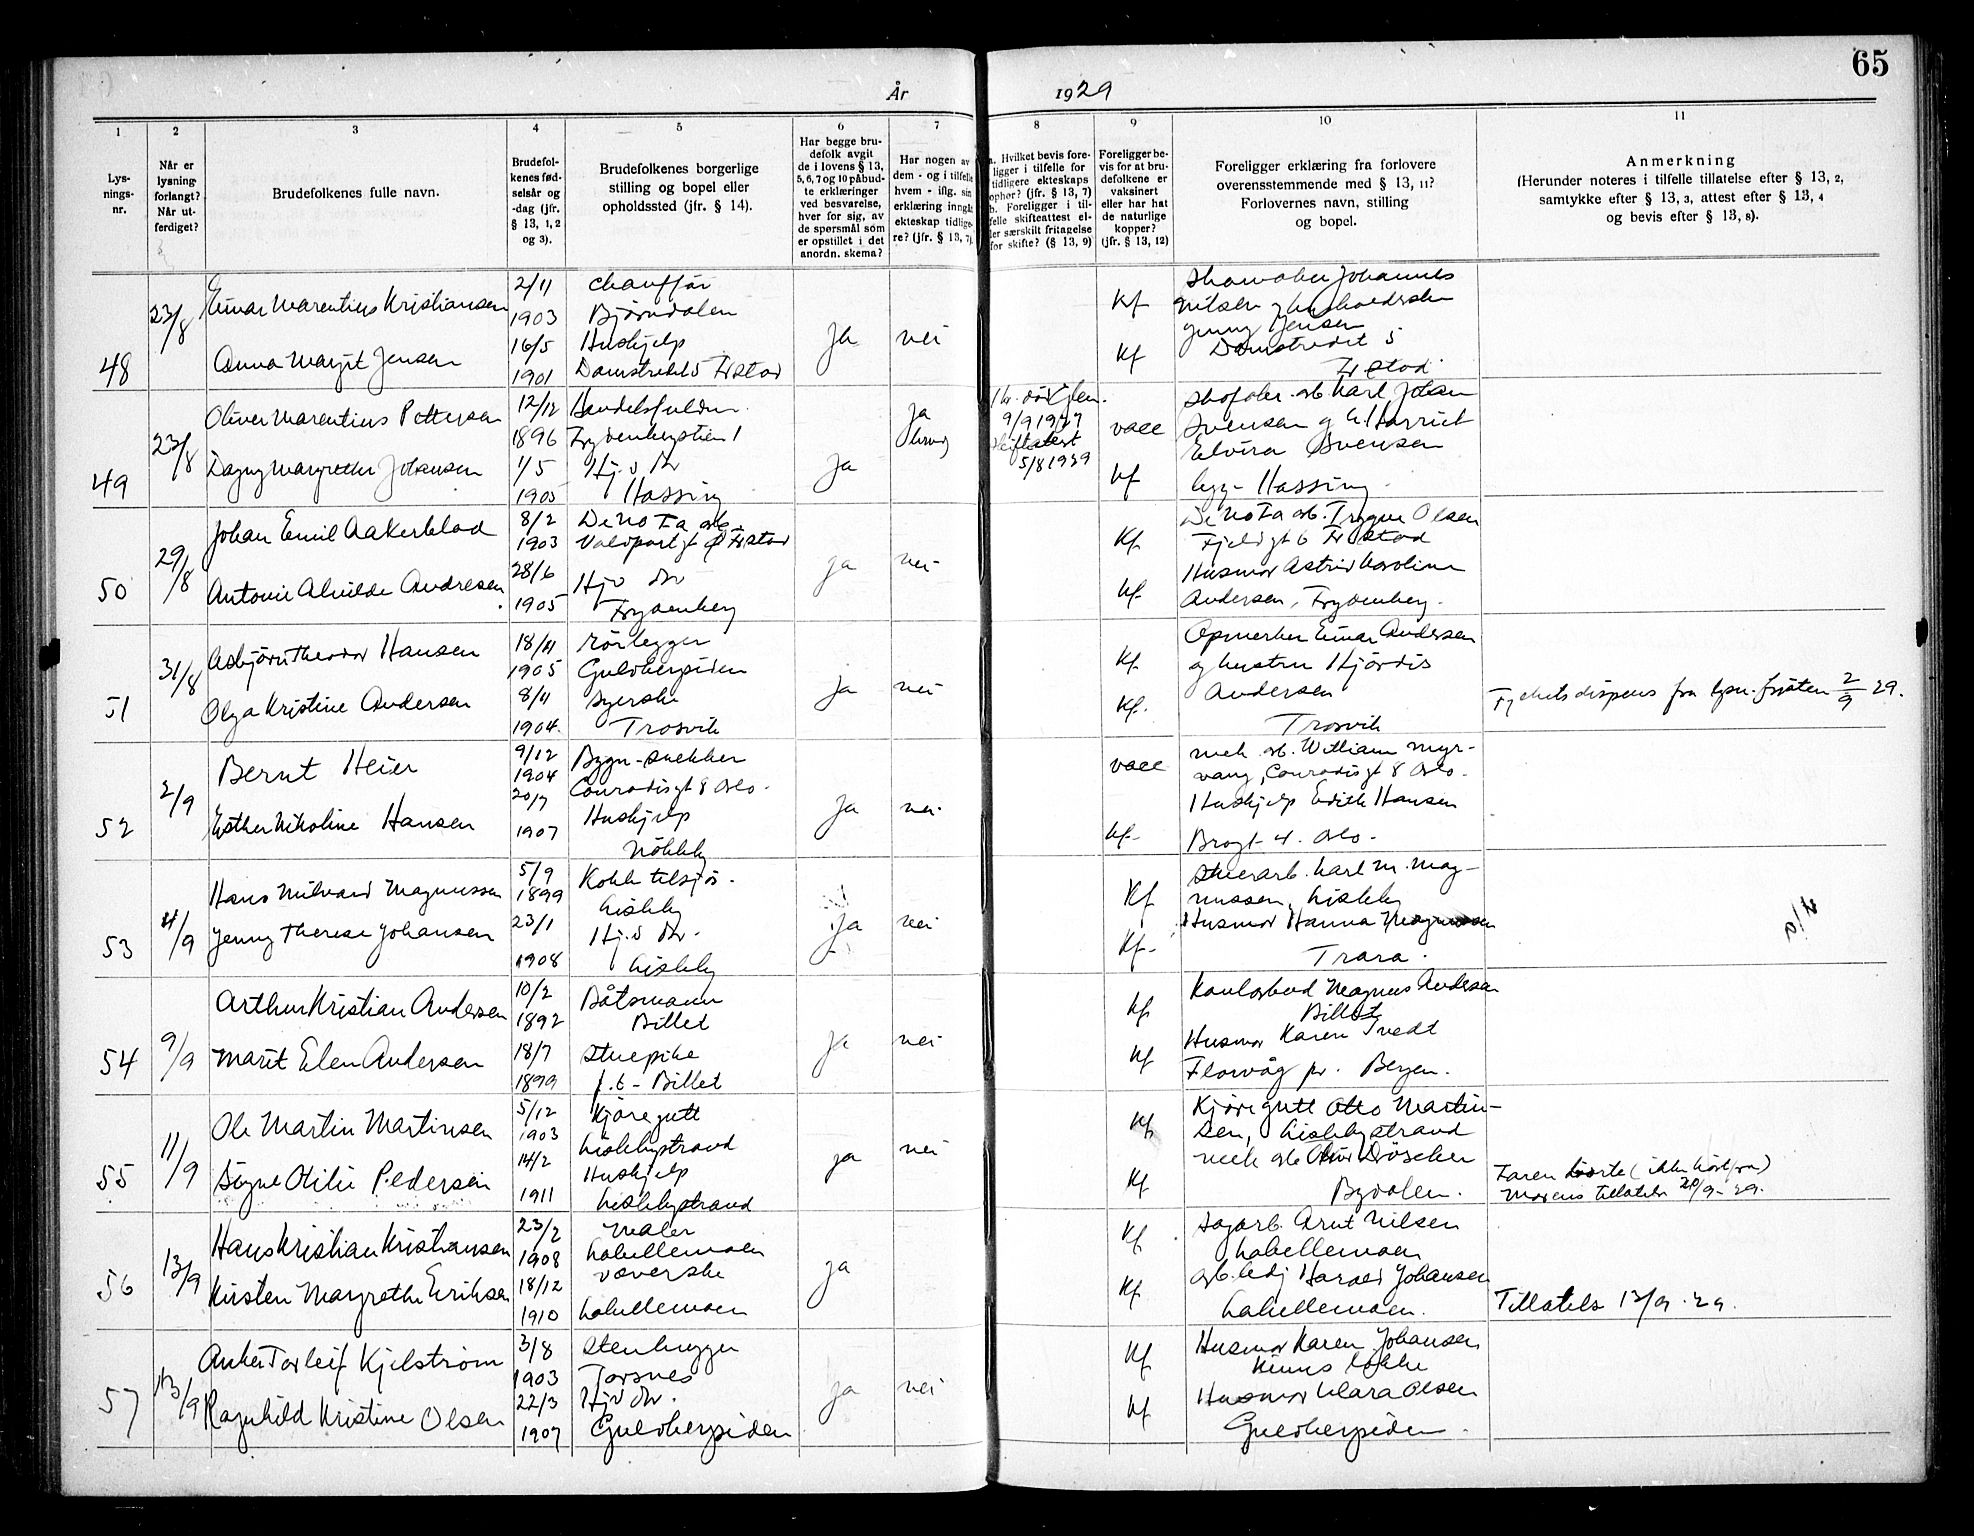 65
År 1929
1
2
3
4
5
6
7
8
9
10
11
Lys-
nings-
nr.
Når er
lysning
forlangt?
Når ut-
ferdiget?
Brudefolkenes fulle navn.
Brudefol-
kenes fød-
selsår og
-dag (jfr.
§ 13, 1, 2
og 3).
Brudefolkenes borgerlige
stilling og bopel eller
opholdssted (jfr. § 14).
Har begge bru-
defolk avgit
de i lovens § 13,
5, 6, 7 og 10 påbud-
te erklæringer
ved besvarelse,
hver for sig, av
de spørsmål som
er opstillet i det
anordn. skema?
Har nogen av
dem - og i tilfelle
hvem - iflg. sin
erklæring inngåt
ekteskap tidlige-
re? (jfr. § 13, 7).
a. Hvilket bevis fore-
ligger i tilfelle for
tidligere ekteskaps
ophør? (jfr. § 13, 7)
b. Foreligger i til-
felle skifteattest el-
ler særskilt fritagelse
for skifte? (§ 13, 9)
Foreligger be-
vis for at bru-
defolkene er
vaksinert
eller har hat
de naturlige
kopper?
(jfr. § 13, 12)
Foreligger erklæring fra forlovere
overensstemmende med § 13, 11?
Forlovernes navn, stilling
og bopel.
Anmerkning
(Herunder noteres i tilfelle tillatelse efter § 13, 2,
samtykke efter § 13, 3, attest efter § 13, 4
og bevis efter § 13, 8).
48
23/8
Einar Marentius Kristiansen
Anna Margit Jensen
2/11
1903
16/5
1901
Chauffør
Bjørndalen
Hushjelp
Damstredet 5 Frstad
Ja
nei
Kf
Kf
Johannes
Nilsen
Jenny Jensen
Damstredet 5
Frstad
49
23/8
Oliver Marentius Pettersen
Dagny Margrethe Johansen
12/12
1896
1/5
1905
Frydenbergstien 1
Hj. v Dr
Hassing
Ja
Ja
9/9 1927
Skifteattest
5/8 1929
vacc
Kf
Karl Johan
Svensen og Harriet
Elvira Svensen
Hassing
50
29/8
Johan Emil Aakerblad
Antonie Alvilde Andresen
8/2
1903
28/6
1905
De No Fa arb.
Frstad
Hj v Dr
Frydenberg
Ja
nei
Kf
Kf
De No Fa arb. Trygve Olsen
Fjeldgt 6 Frstad
Husmor Astrid Karoline
Andersen, Frydenberg.
51
31/8
Asbjørn Theodor Hansen
Olga Kristine Andersen
18/11
1905
8/11
1904
Rørlegger
Guldbergsiden
Syerske
Trosvik
Ja
nei
Kf
Kf.
Opmerker Einar Andersen
og hustru Hjørdis
Andersen
Trosvik
Fylkets dispens fra lysn. fristen 2/9 29.
52
2/9
Bernt Heier
Esther Nikoline Hansen
9/12
1904
20/7
1907
Bygn-snekker
Conradisgt 8 Oslo.
Hushjelp
Nøkleby
Ja
nei
vacc
Kf-
mek arb. William Myr-
vang, Conradisgt 8 Oslo.
Hushjelp Edith Hansen
Brogt 4. Oslo.
53
4/9
Hans Milvard Magnussen
Jenny Therese Johansen
5/9
1899
23/1
1908
Kokk tilsjøs.
Lisleby
Hj. v Dr.
Lisleby
Ja
nei
Kf
Kf-
Karl M. Mag-
nussen, Lisleby
Husmor Hanna Magnussen
Trara.
54
9/9
Arthur Kristian Andersen
Marit Elen Andersen
10/2
1892
18/7
1899
Båtsmann
Billet
Stuepike
f. t- Billet
Ja
nei
Kf
Kf
Magnus Andersen
Billet
Husmor Karen Tvedt
Florvåg pr. Bergen.
55
11/9
Ole Martin Martinsen
Signe Otilie Pedersen
5/12
1903
14/2
1911
Kjøregutt
Lislebystrand
Hushjelp
Lislebystrand
ja
nei
Kf
Kf
Kjøregutt Otto Martin-
sen, Lislebystrand
mek arb
Bydalen.
Faren borte (ikke hørt fra)
Morens tillatelse 20/9-29.
56
13/9
Hans Kristian Kristiansen
Kirsten Margrethe Eriksen
23/2
1908
18/12
1910
Maler
Lahellemoen
Væverske
Lahellemoen
Ja
Kf
Kf
Sagarb. Arnt Nilsen
Lahellemoen
arb. ledj Harald Johansen
Lahellemoen.
Tillatels 13/9-29.
57
13/9
Anker Torleif Kjelstrøm
Ragnhild Kristine Olsen
3/8
1903
22/3
1907
Stenhugger
Torsnes
Hj v Dr.
Guldbergsiden
Ja
nei
Kf
Kf
Husmor Karen Johansen
Husmor Klara Olsen
Guldbergsiden.